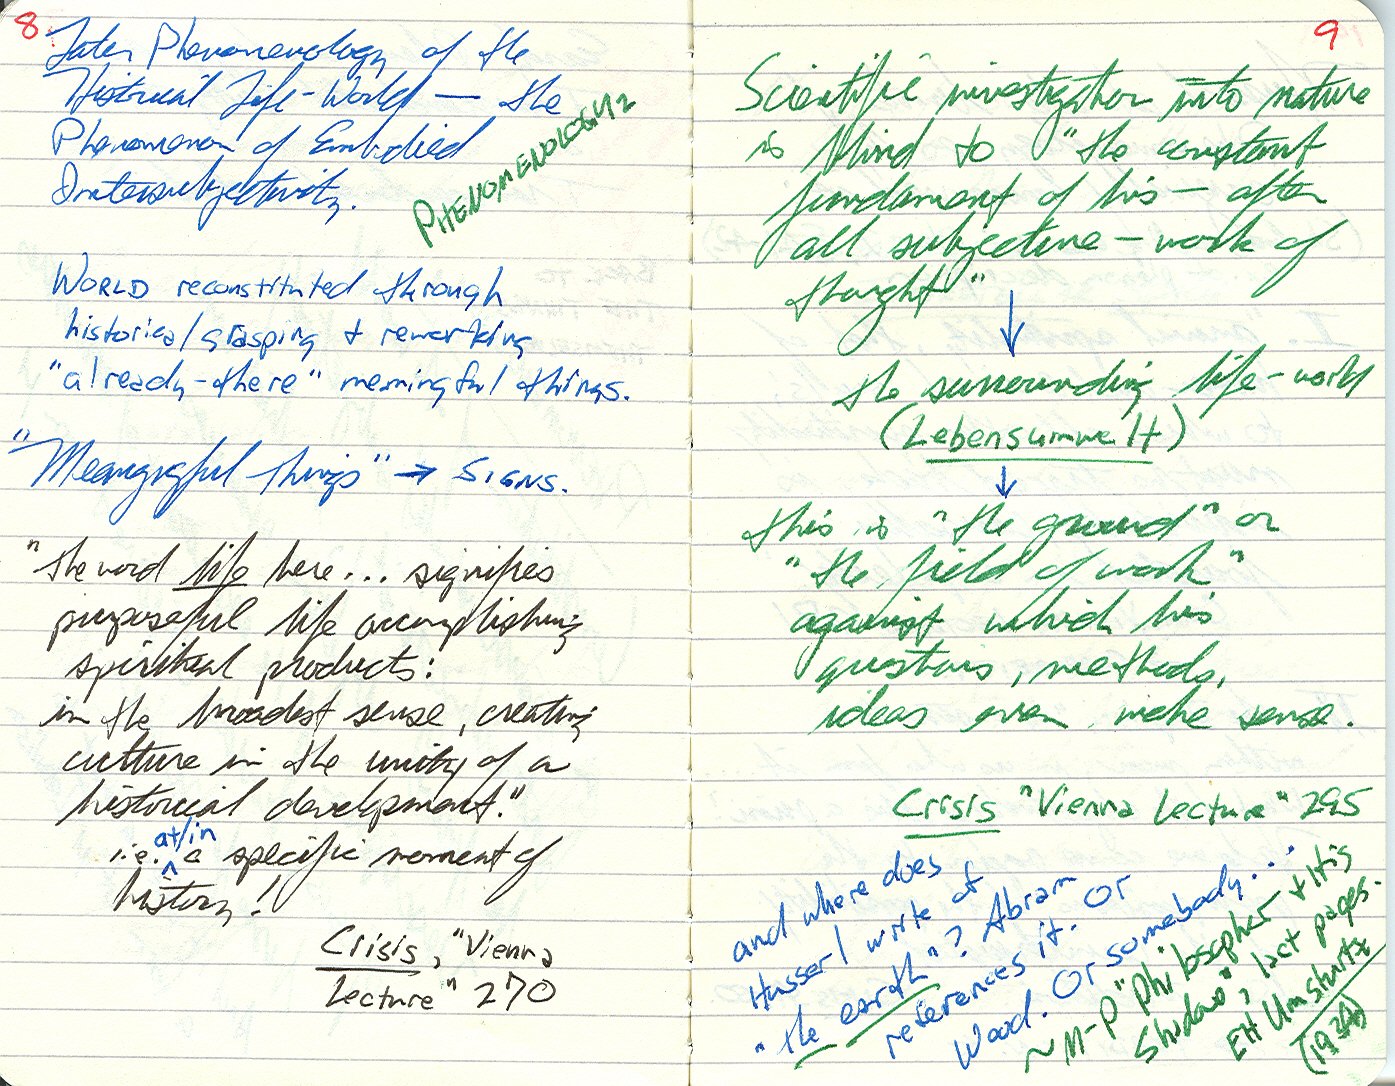 8.
Later Phenomenology of the
Historical Life-World — the
Phenomenon of Embodied
Intersubjectivity.
PHENOMENOLOGY 2
WORLD reconstituted through
historical grasping + reworking
"already-there" meaningful things.
"Meaningful things" → SIGNS.
"the word life here... signifies
purposeful life accomplishing
spiritual products:
in the broadest sense, creating
culture in the unity of a
historical development."
at/in
i.e. ^ a specific moment of
history!
Crisis, "Vienna
Lecture" 270
9
Scientific investigation into nature
is blind to "the constant
fundament of his — after
all subjective — work of
thought"
↓
the surrounding life-world
(Lebensumwelt)
↓
this is "the ground" or
"the field of work"
against which his
questions, methods,
ideas even make sense.
Crisis "Vienna Lecture" 295
and where does
Husserl write of
"the earth"? Abram
references it. Or
Wood. Or somebody...
~ M-P "Philosopher + His
Shadow", last pages.
EH Umsturtz
(1934)